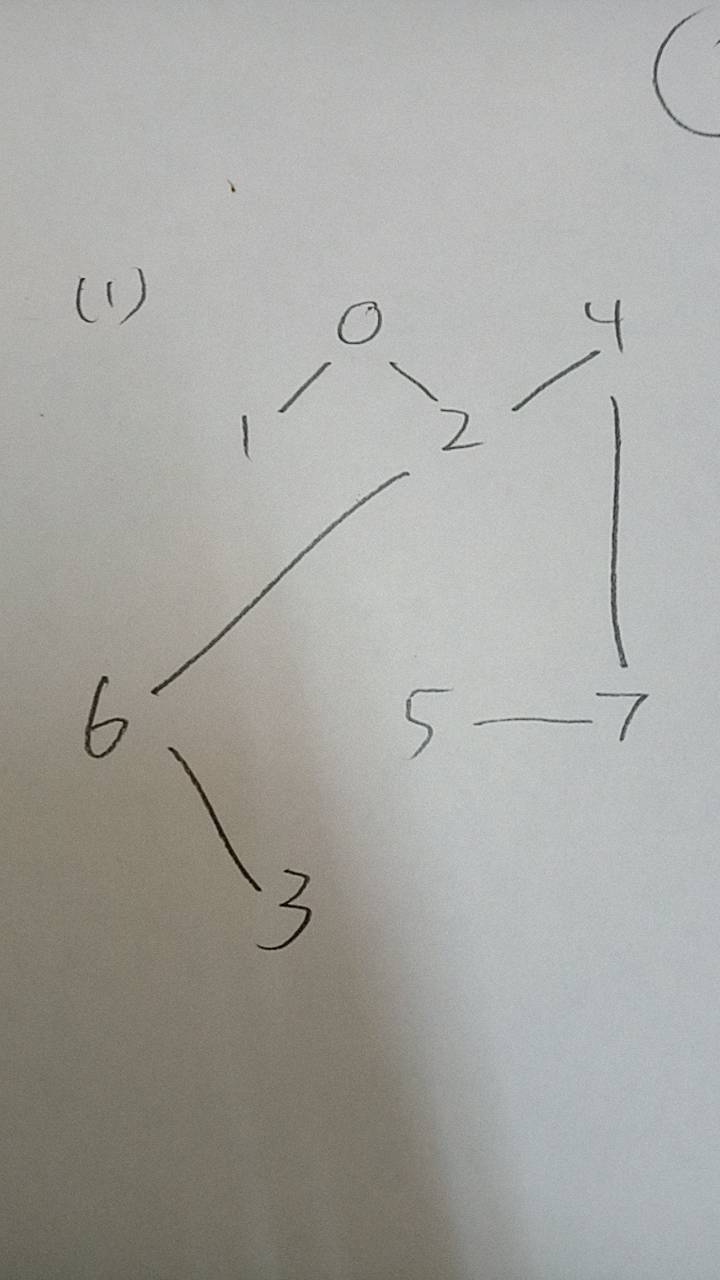 (1)
0 4
1 2
6 5 7
3